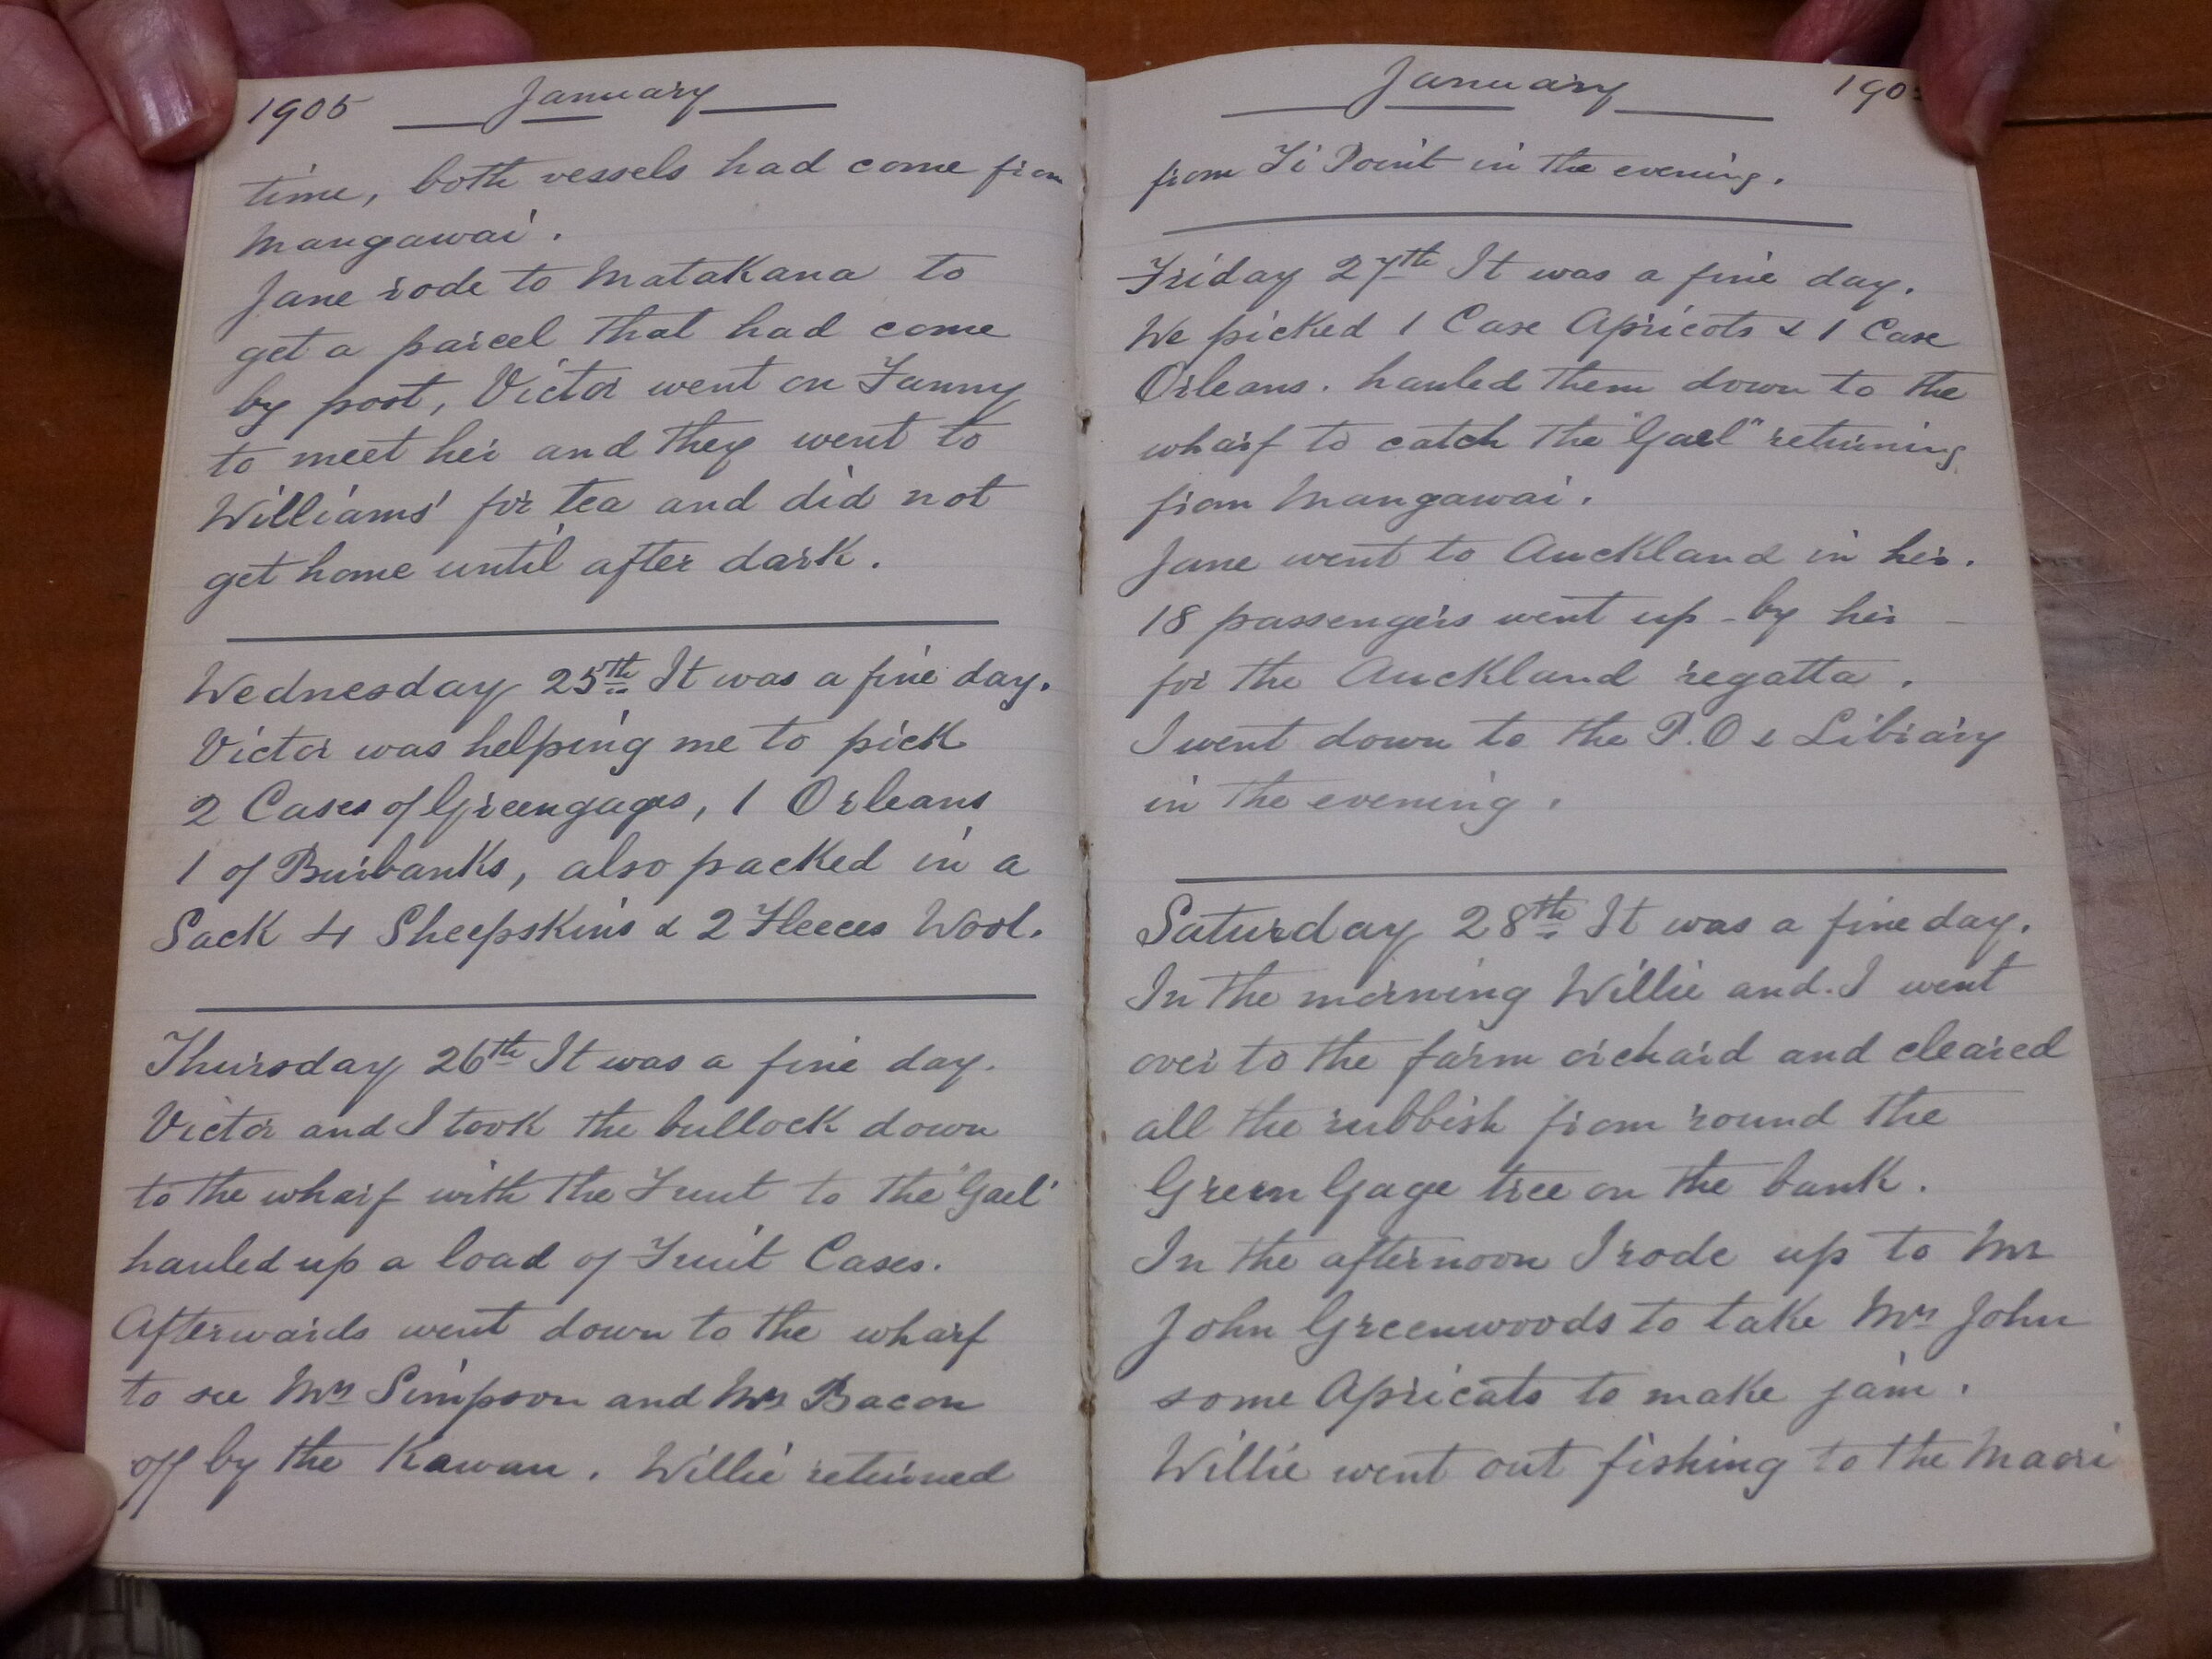 1905 January
time, both vessels had come from
Mangawai.
Jane rode to Matakana to
get a parcel that had come
by post, Victor went on Fanny
to meet her and they went to
Williams' for tea and did not
get home until after dark.
Wednesday 25th It was a fine day.
Victor was helping me to pick
2 Cases of Greengages, 1 Orleans
1 of Burbanks, also packed in a
Sack 4 Sheepskins & 2 Fleeces Wool.
Thursday 26th It was a fine day.
Victor and I took the bullock down
to the wharf with the Fruit to the "Gael"
hauled up a load of Fruit Cases.
Afterwards went down to the wharf
to see Mrs Simpson and Mrs Bacon
off by the Kawau. Willie returned
January 190
from Ti Point in the evening.
Friday 27th It was a fine day.
We picked 1 Case Apricots & 1 Case
Orleans. hauled them down to the
wharf to catch the "Gael" returning
from Mangawai.
Jane went to Auckland in her.
18 passengers went up - by her -
for the Auckland regatta.
I went down to the P.O & Library
in the evening.
Saturday 28th It was a fine day.
In the morning Willie and I went
over to the farm orchard and cleared
all the rubbish from round the
Green Gage tree on the bank.
In the afternoon I rode up to Mr
John Greenwoods to take Mrs John
some Apricots to make jam.
Willie went out fishing to the Maori